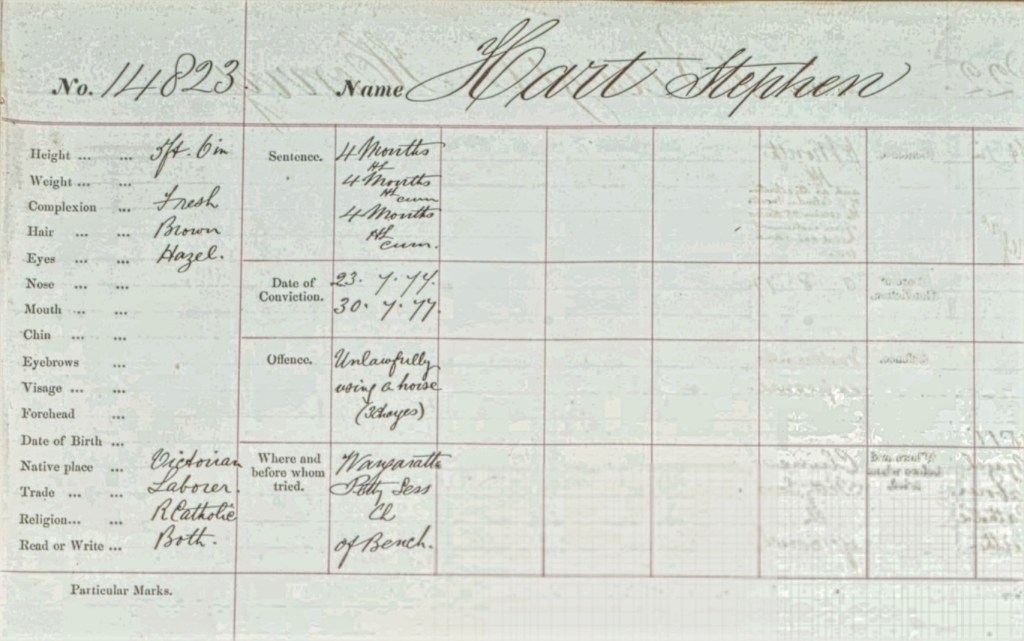 No. 14823. Name Hart Stephen
Height ... ... 5ft. 6in
Weight ... ...
Complexion ... Fresh
Hair ... ... Brown
Eyes ... ... Hazel.
Nose ... ...
Mouth ... ...
Chin ... ...
Eyebrows ...
Visage ... ...
Forehead ...
Date of Birth ...
Native place ... Victorian
Trade ... ... Laborer.
Religion... ... R Catholic
Read or Write ... Both.
Particular Marks.
Sentence. 4 Months
HL
4 Months
HL cum
4 Months
HL
cum.
Date of 23. 7. 77.
Conviction. 30. 7. 77.
Offence. Unlawfully
using a horse
(3 Charges)
Where and Wangaratta
before whom Petty Sess
tried. Ch
of Bench.